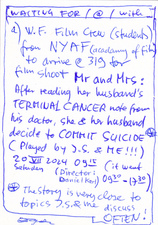 WAITING FOR / @ / with
4) W. F. Film Crew (students)
from NYAF (academy of Film)
to arrive @ 319 for
film shoot Mr and Mrs:
After reading her husband's
TERMINAL CANCER note from
his doctor, she & her husband
decide to COMMIT SUICIDE
(Played by J.S. & ME!!!)
20 VII 2024 09 15
Saturday (it went
(Director: 09 30 - 17 30)
Daniel Kerj)
The story is very close to
topics J.S. & me discuss
OFTEN!